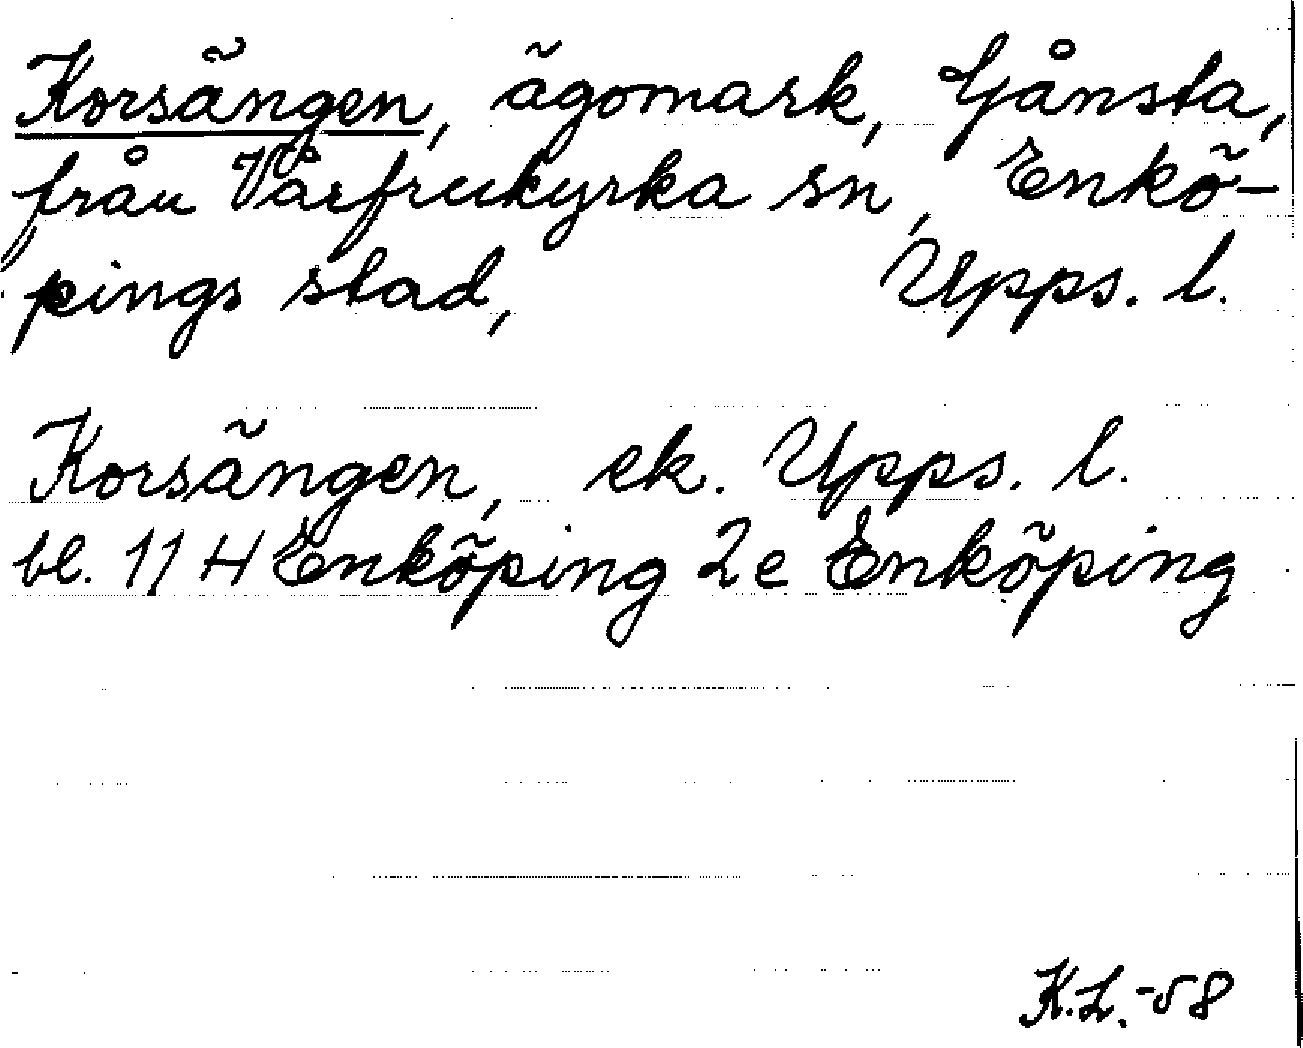 Korsängen, ägomark, Gånsta,
från Vårfrukyrka sn, Enkö-
pings stad, Upps. l.
Korsängen, ek. Upps. l.
bl. 11 H Enköping 2e Enköping
K.L.-58